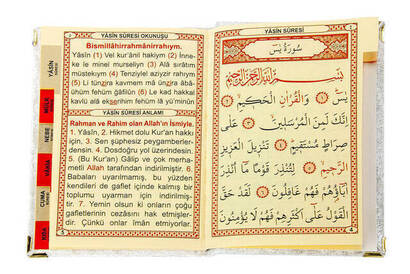 YÂSÎN SÛRESİ OKUNUŞU
Bismillâhirrahmânirrahîym.
Yâsîn (1) Vel kur'ânil hakiym (2) İnne-
ke le minel murseliyn (3) Alâ sırâtım
müstekıym (4) Tenziylel aziyzir rahıym
(5) Li tünzira
ühüm fehüm ğâfilûn (6) Le kad hakkal
kavlü alâ ekserihim fehüm lâ yü'minûn
YÂSÎN SÛRESİ ANLAMI
Rahman ve Rahim olan Allah'ın İsmiyle.
1. Yâsîn, 2. Hikmet dolu Kur'an hakkı
için, 3. Sen şüphesiz peygamberler-
densin. 4. Dosdoğru yol üzerindesin.
5. (Bu Kur'an) Gâlip ve çok merha-
metli Allah tarafından indirilmiştir. 6.
Babaları uyarılmamış, bu yüzden
kendileri de gaflet içinde kalmış bir
toplumu uyarman için indirilmiş-
tir. 7. Yemin olsun ki onların çoğu
gafletlerinin cezasını hak etmişler-
dir. Çünkü onlar iman etmiyorlar.
YÂSÎN
MÜLK
NEBE
VAKIA
CUMA
KISA
YÂSÎN SÛRESİ
سُورَةُ يٰسٓ
بِسْمِ اللّٰهِ الرَّحْمٰنِ الرَّحِيمِ
يٰسٓ ۝ وَالْقُرْاٰنِ الْحَكِيمِ ۝
اِنَّكَ لَمِنَ الْمُرْسَلِينَ ۝ عَلٰى
صِرَاطٍ مُسْتَقِيمٍ ۝ تَنْزِيلَ الْعَزِيزِ
الرَّحِيمِ ۝ لِتُنْذِرَ قَوْمًا مَٓا اُنْذِرَ
اٰبَٓاؤُ۬هُمْ فَهُمْ غَافِلُونَ ۝ لَقَدْ حَقَّ
الْقَوْلُ عَلٰٓى اَكْثَرِهِمْ فَهُمْ لَا يُؤْمِنُونَ